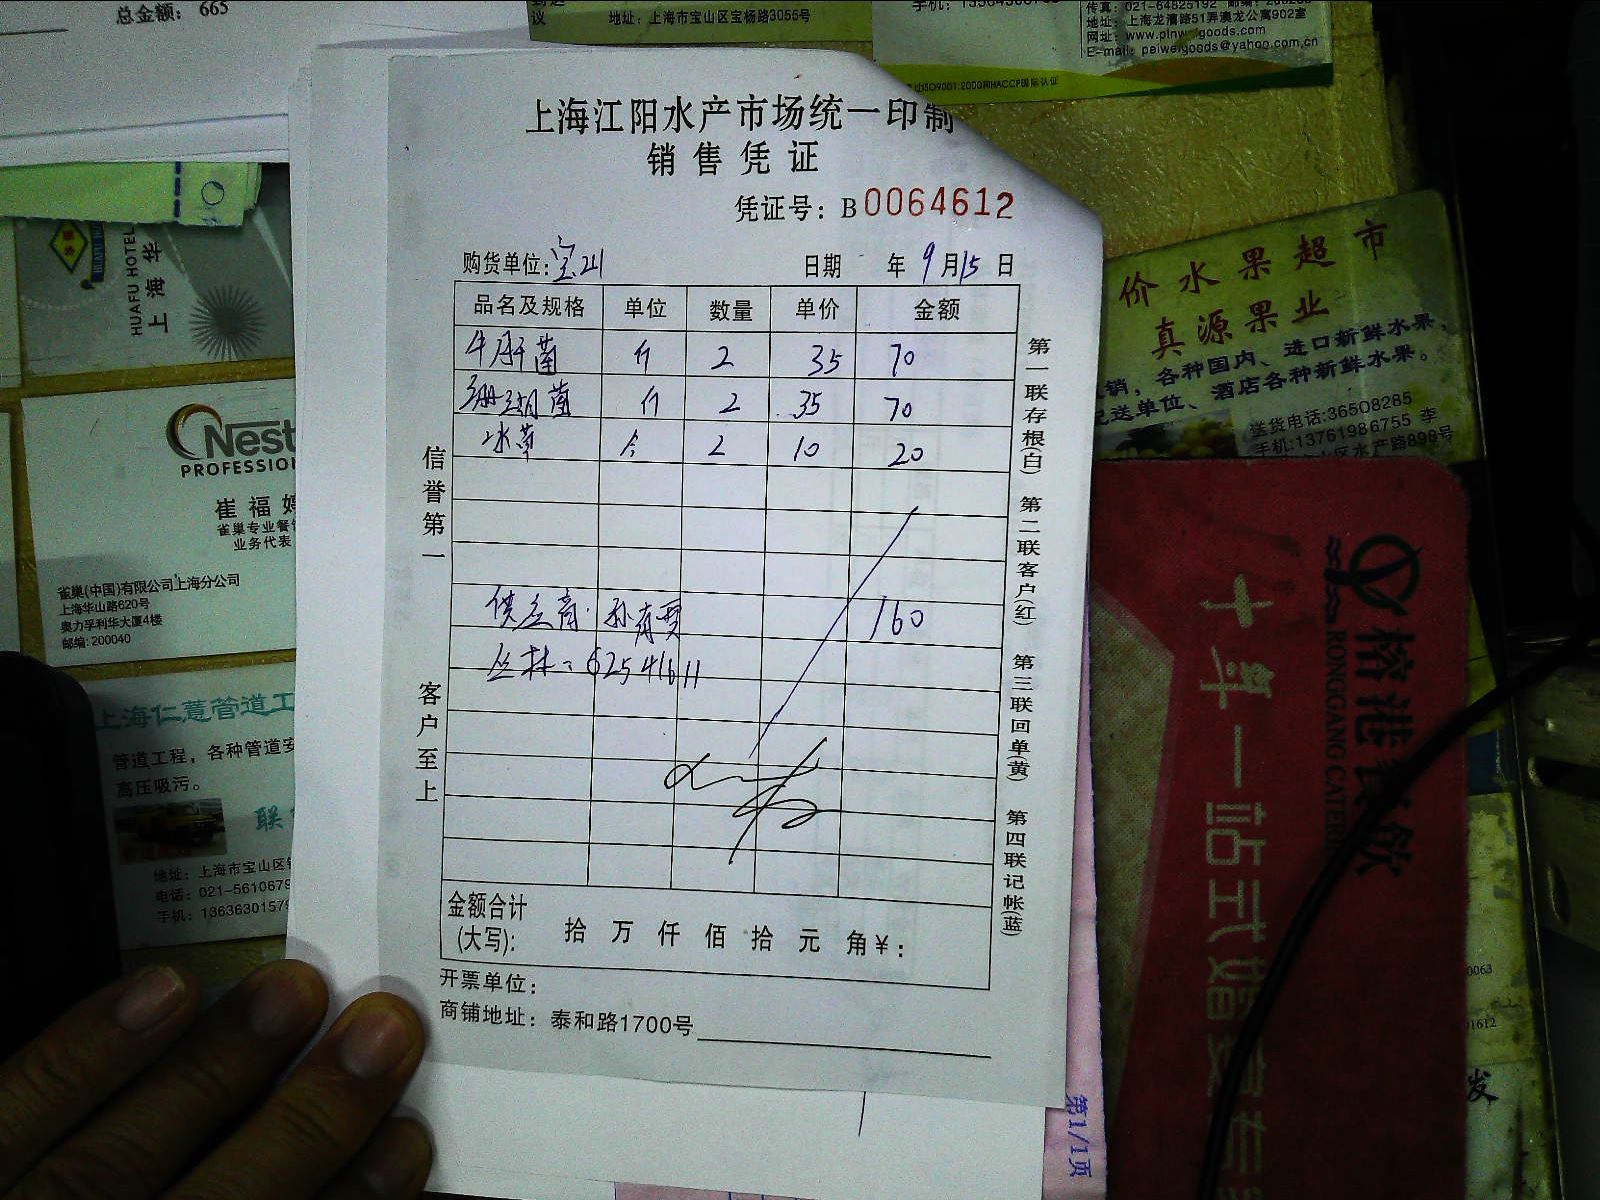 总金额: 665
地址: 上海市宝山区宝杨路3055号
传真: 021-64825192
地址: 上海龙漕路51弄澳龙公寓902室
网址: www.pinweigoods.com
E-mail: peiweigoods@yahoo.com.cn
ISO9001:2000和HACCP国际认证
上海江阳水产市场统一印制
销售凭证
凭证号: B0064612
购货单位: 宝山 日期 年 9 月 15 日
品名及规格 单位 数量 单价 金额
牛肝菌 斤 2 35 70
珊瑚菌 斤 2 35 70
冰草 个 2 10 20
160
丛林: 62541611
金额合计
(大写): 拾 万 仟 佰 拾 元 角 ¥:
开票单位:
商铺地址: 泰和路1700号
信誉第一
客户至上
第一联存根(白) 第二联客户(红) 第三联回单(黄) 第四联记帐(蓝)
HUAFU HOTEL
上海华
Nest
PROFESSION
崔福
雀巢专业餐
业务代表
雀巢(中国)有限公司上海分公司
上海华山路620号
奥力孚利华大厦4楼
邮编: 200040
上海仁薏管道工
管道工程, 各种管道安
高压吸污。
联
地址: 上海市宝山区
电话: 021-5610679
手机: 1363630157
价水果超市
真源果业
销, 各种国内、进口新鲜水果,
配送单位、酒店各种新鲜水果。
送货电话:36508285
手机:13761986755 李
山区水产路898号
榕港餐饮
RONGGANG CATERI
十年一站式婚宴
0063
01612
发
第1/1页